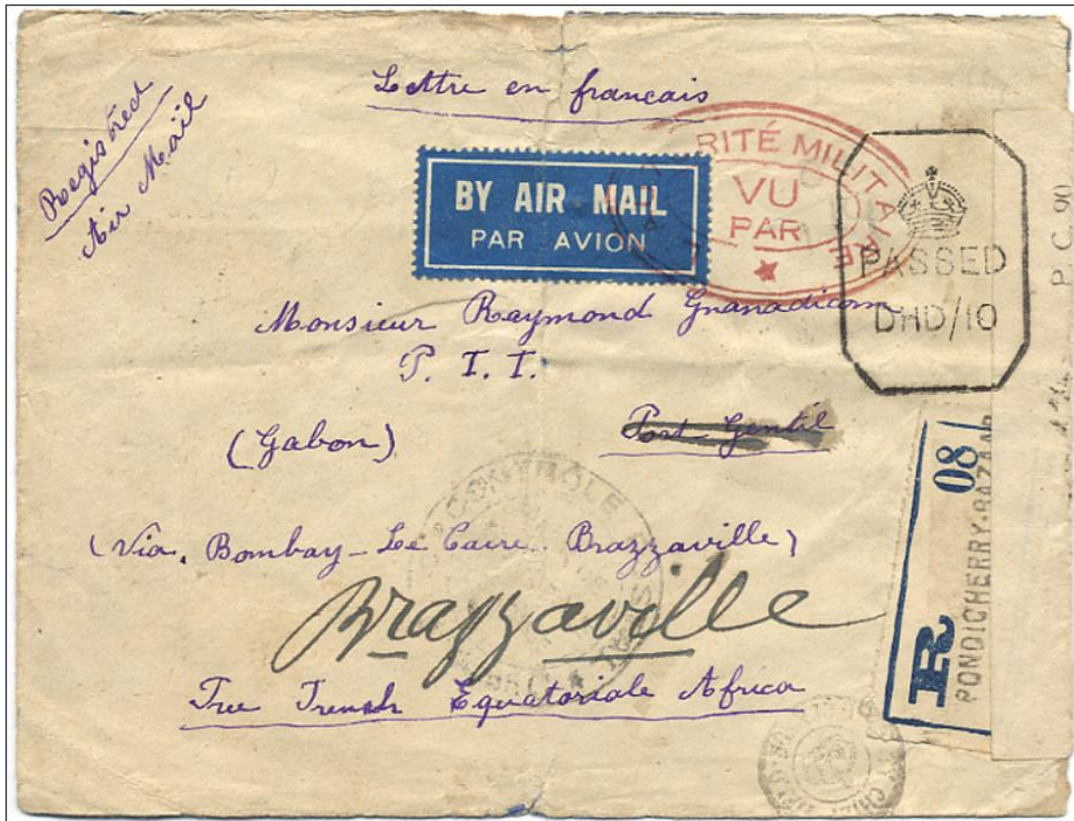 Registred
Air Mail
Lettre en francais
BY AIR MAIL
PAR AVION
RITÉ MILITAIRE
VU
PAR
PASSED
DHD/10
P. C. 90
Monsieur Raymond Gnanadicom
P. T. T.
(Gabon)
Port Gentil
CONTROLE
(Via. Bombay - Le Caire - Brazzaville)
Brazzaville
Free French Equatoriale Africa
R
08
PONDICHERRY-BAZAAR